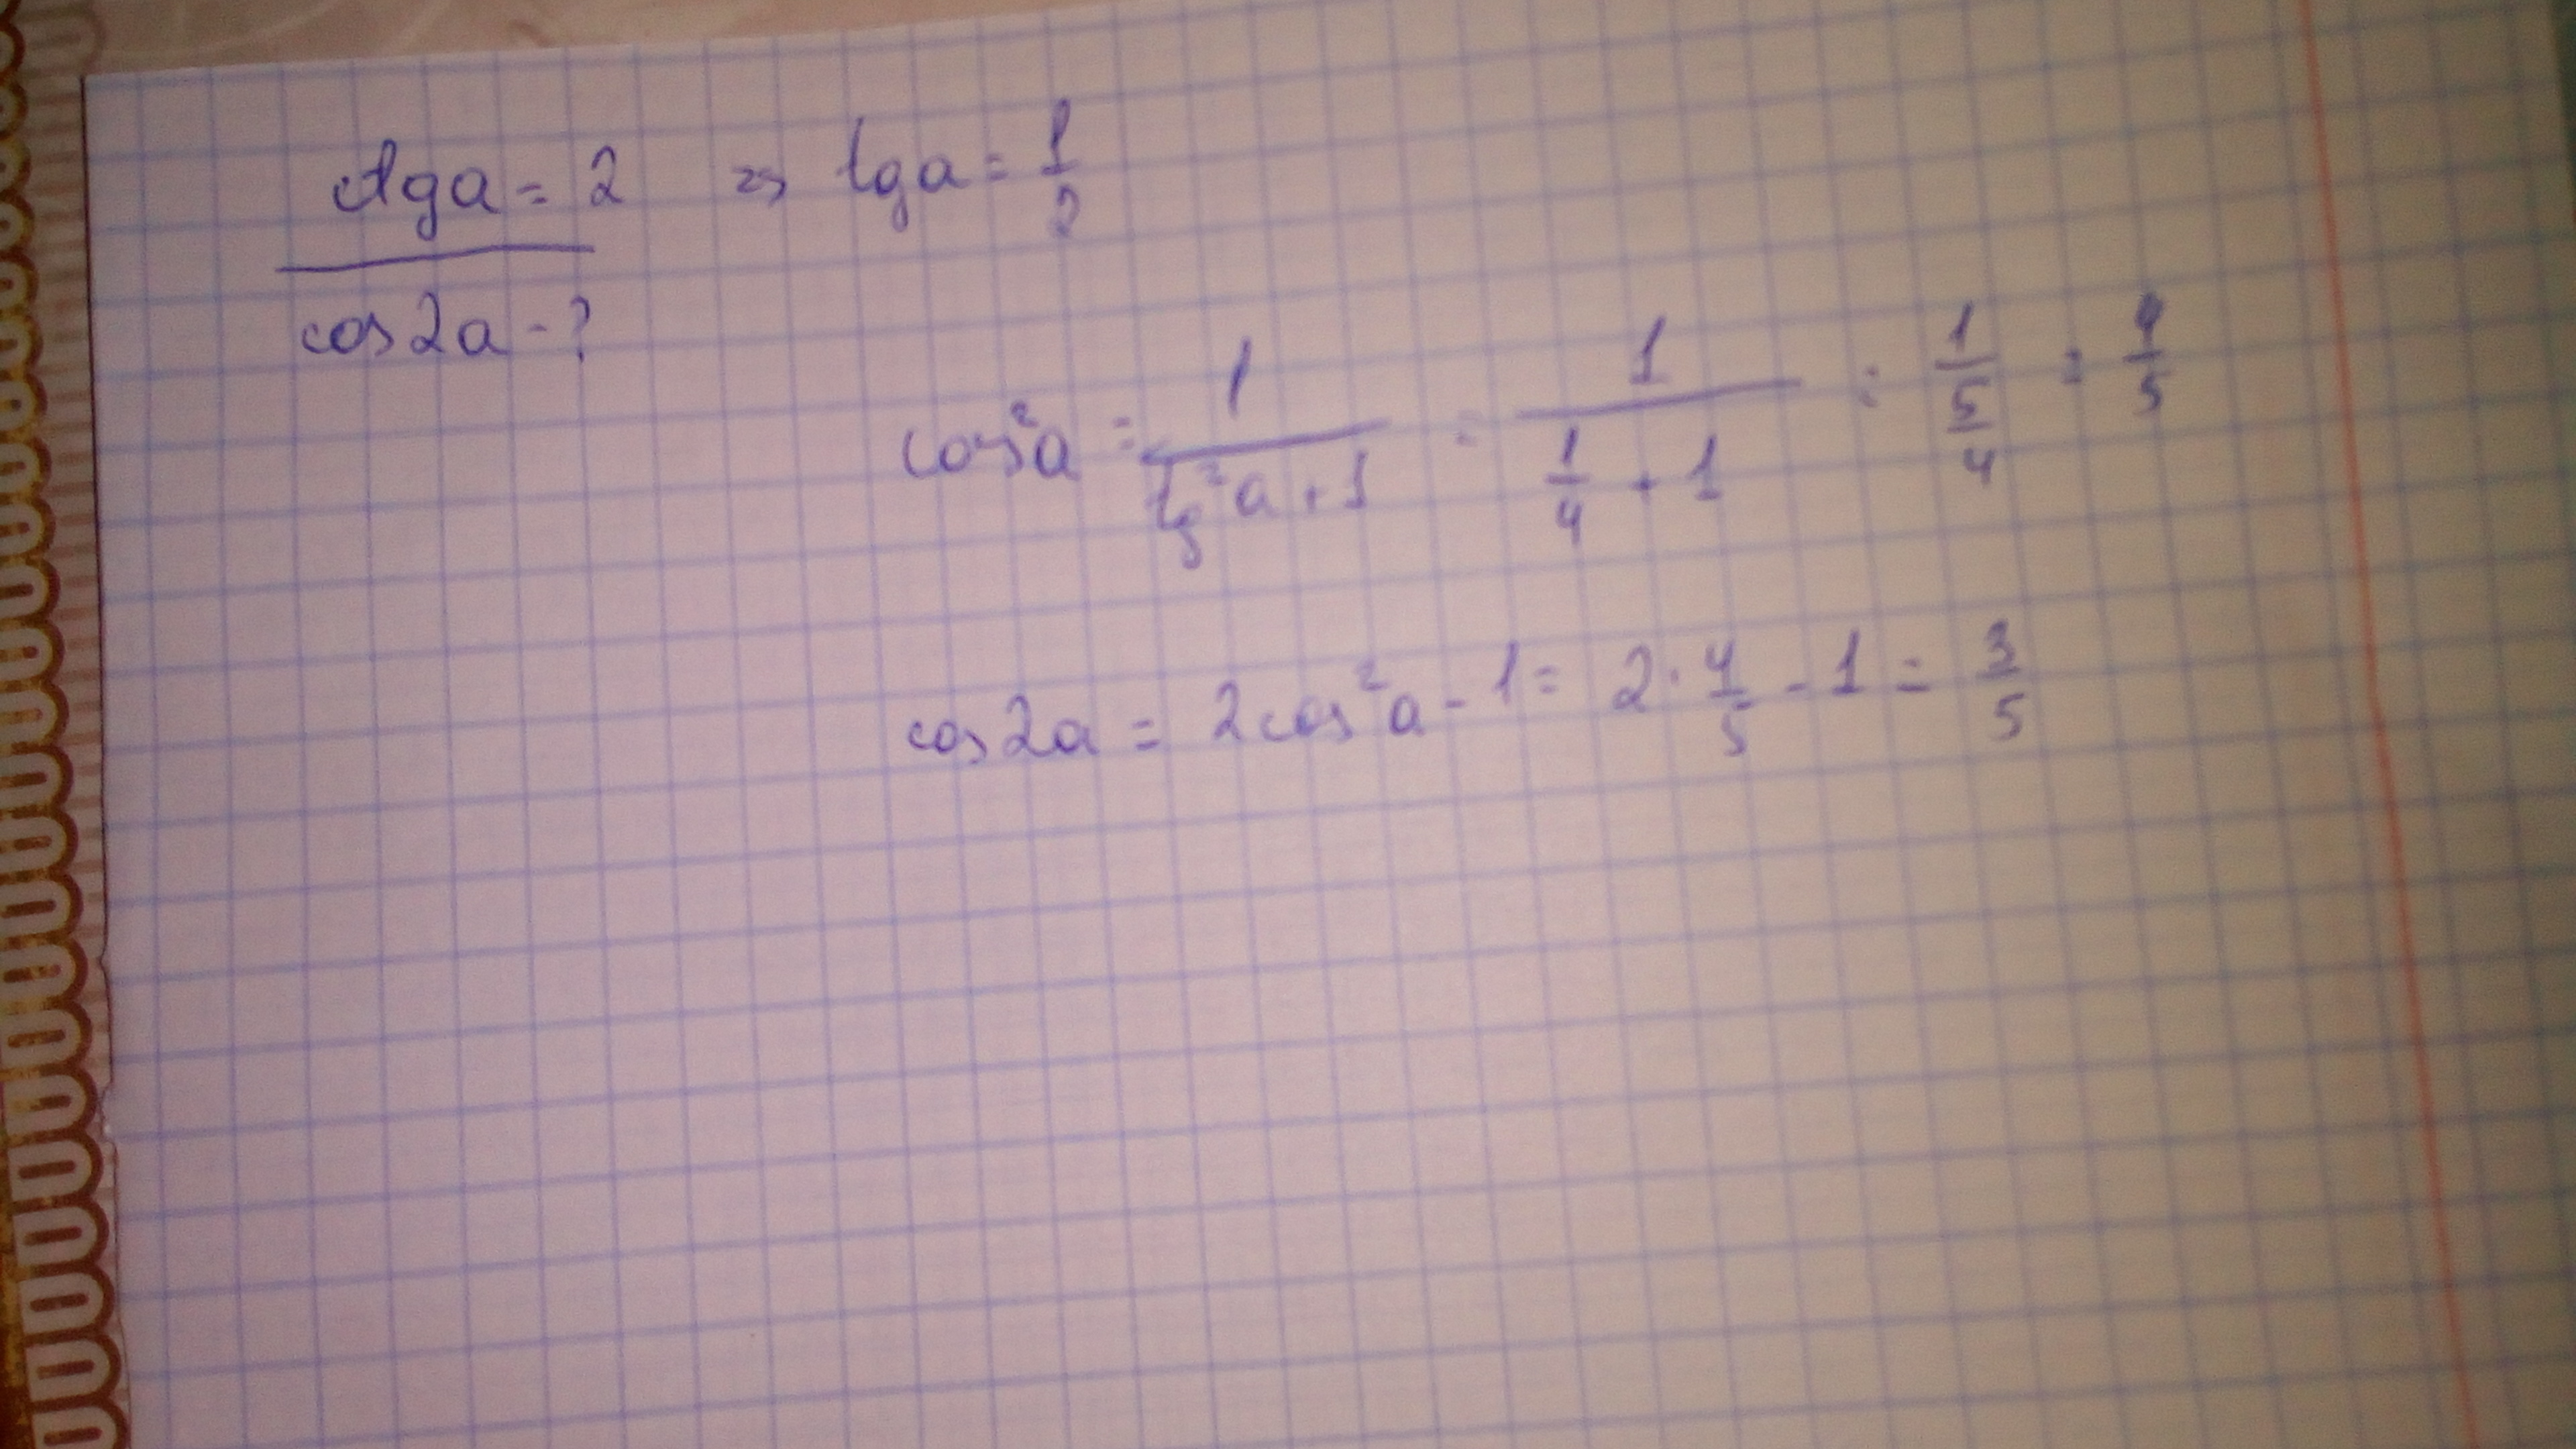 ctga = 2 => tga = 1/2
cos2a - ?
cos²a = 1/(tg²a + 1) = 1/(1/4 + 1) = 1/(5/4) = 4/5
cos2a = 2cos²a - 1 = 2 · 4/5 - 1 = 3/5